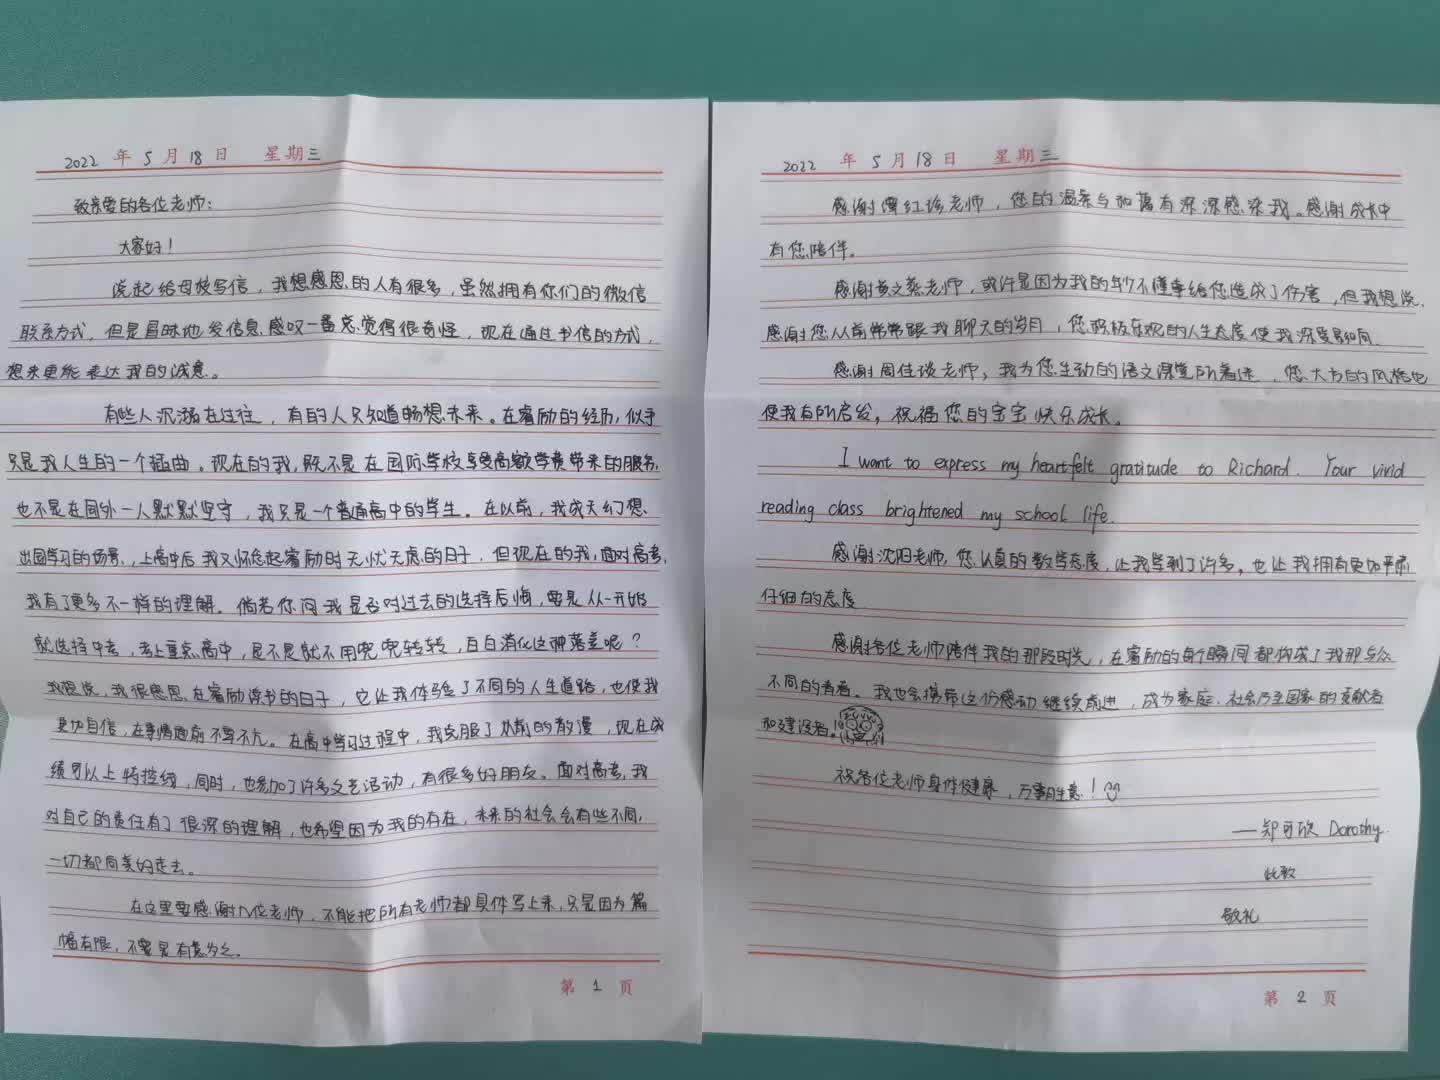 2022 年 5 月 18 日 星期三
致亲爱的各位老师:
大家好!
说起给母校写信,我想感恩的人有很多,虽然拥有你们的微信
联系方式,但是冒昧地发信息、感叹一番总觉得很奇怪,现在通过书信的方式,
想来更能表达我的诚意。
有些人沉溺在过往,有的人只知道畅想未来。在睿励的经历,似乎
只是我人生的一个插曲。现在的我,既不是在国际学校享受高额学费带来的服务,
也不是在国外一人默默坚守,我只是一个普通高中的学生。在以前,我成天幻想
出国学习的场景,上高中后我又怀念起睿励时无忧无虑的日子,但现在的我,面对高考,
我有了更多不一样的理解。倘若你问我是否对过去的选择后悔,要是从一开始
就选择中考,考上重点高中,是不是就不用兜兜转转,自白消化这种落差呢?
我想说,我很感恩在睿励读书的日子,它让我体验了不同的人生道路,也使我
更加自信,在事情面前不卑不亢。在高中学习过程中,我克服了从前的散漫,现在成
绩可以上特控线,同时,也参加了许多文艺活动,有很多好朋友。面对高考,我
对自己的责任有了很深的理解,也希望因为我的存在,未来的社会会有些不同,
一切都向美好走去。
在这里要感谢几位老师,不能把所有老师都具体写上来,只是因为篇
幅有限,不要是有意为之。
第 1 页
2022 年 5 月 18 日 星期三
感谢 红珍老师,您的温柔与和蔼有深深感染我。感谢成长中
有您陪伴。
感谢黄文燕老师,或许是因为我的年少不懂事给您造成了伤害,但我想说,
感谢您从前常常跟我聊天的岁月,您积极乐观的人生态度使我深受影响。
感谢周佳谈老师,我为您生动的语文课堂所着迷,您大方的风格也
使我有所启发,祝福您的宝宝快乐成长。
I want to express my heartfelt gratitude to Richard. Your vivid
reading class brightened my school life.
感谢沈阳老师,您认真的教学态度,让我学到了许多,也让我拥有更加严肃
仔细的态度
感谢各位老师陪伴我的那段时光,在睿励的每个瞬间都构成了我那与众
不同的青春。我也会携带这份感动继续前进,成为家庭、社会乃至国家的贡献者
和建设者。
祝各位老师身体健康,万事胜意!
——郑可欣 Dorothy.
此致
敬礼
第 2 页